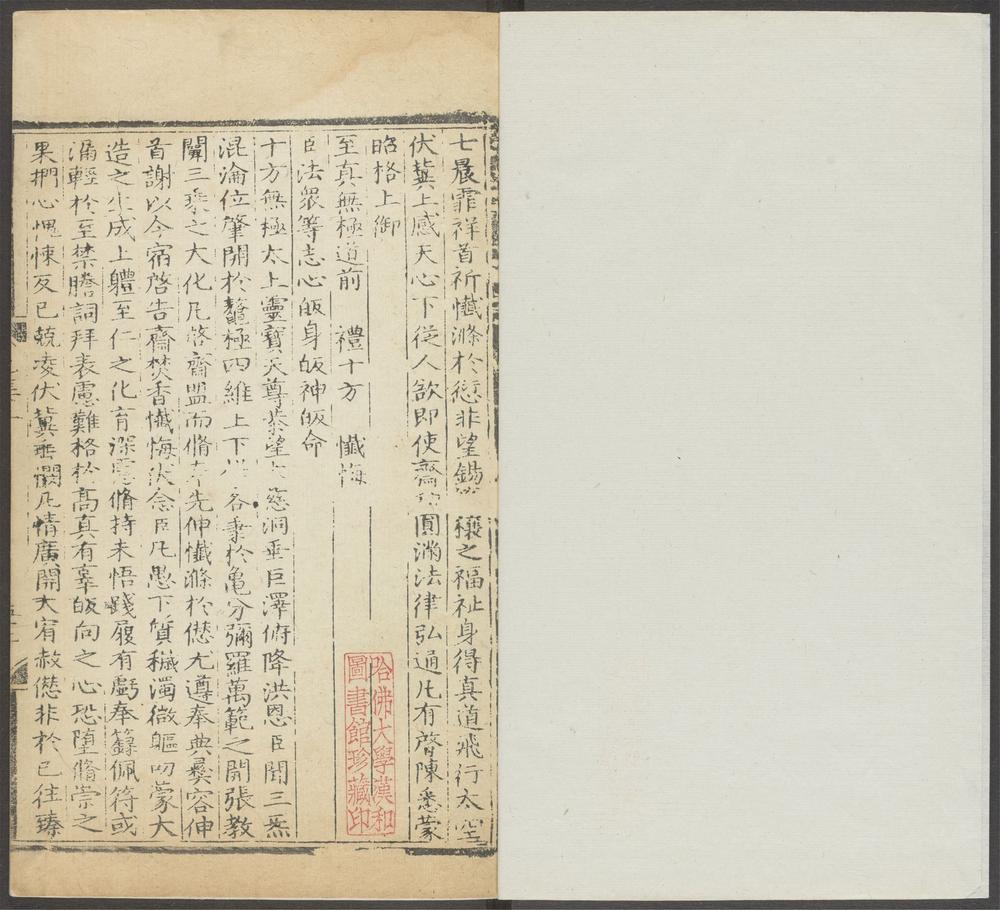 七晨霏祥首祈懺滌於愆非望錫 穰之福祉身得真道飛行太空
伏冀上感天心下從人欲即使齋 圓滿法律弘通凡有啓陳悉蒙
昭格上御
至真無極道前 禮十方 懺悔
臣法衆等志心皈身皈神皈命
十方無極太上靈寶天尊恭望大慈洞垂巨澤俯降洪恩臣聞三炁
混淪位肇開於鼇極四維上下 各秉於龜分彌羅萬範之開張教
闡三乘之大化凡啓齋盟而脩奉先伸懺滌於愆尤遵奉典彜容伸
首謝以今宿啓告齋焚香懺悔伏念臣凡愚下質穢濁微軀叨蒙大
造之生成上軆至仁之化育深 脩持未悟踐履有虧奉籙佩符或
涌輕於至禁謄詞拜表慮難格於高真有辜皈向之心恐墮脩崇之
果捫心愧悚反已兢凌伏冀垂 凡情廣開大宥赦愆非於已往臻
哈佛大學漢和
圖書館珍藏印